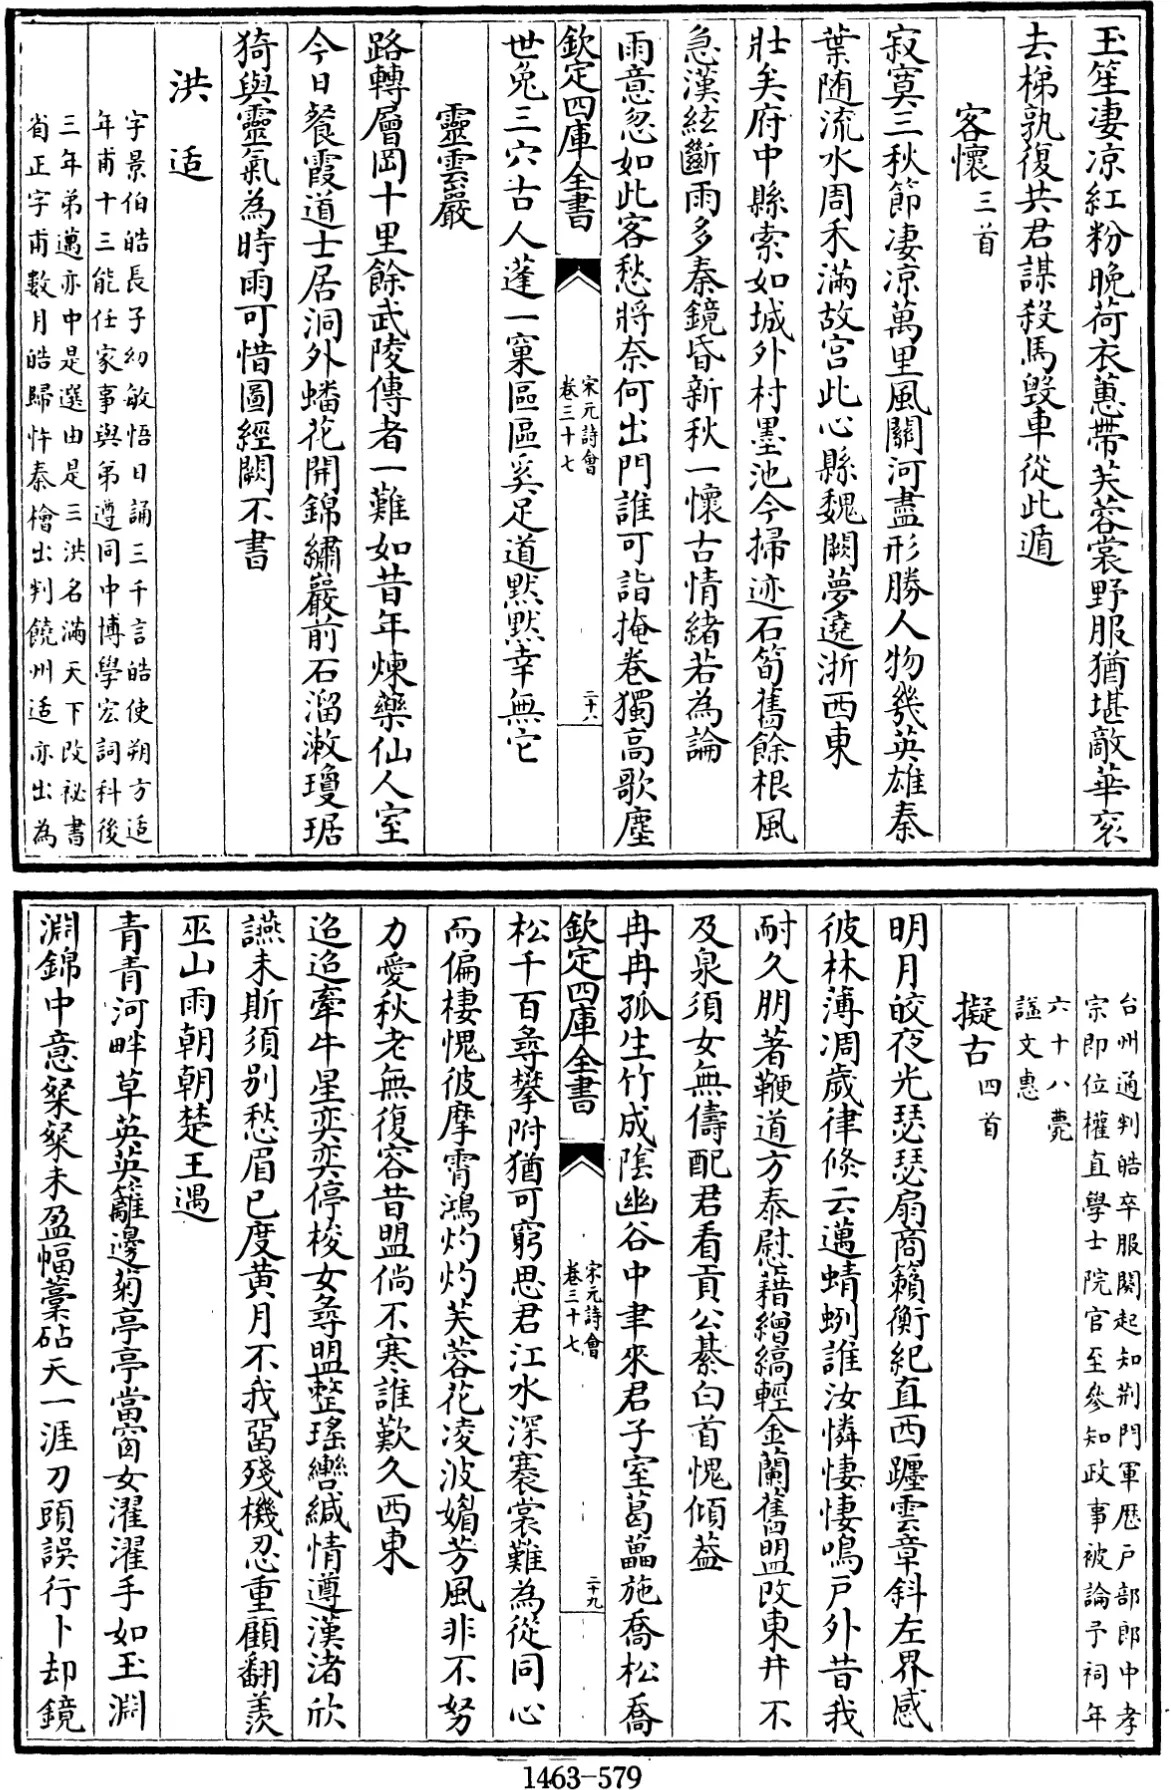 玉笙凄凉紅粉晚荷衣蕙帶芙蓉裳野服猶堪敵華衮
去梯孰復共君謀殺馬毀車從此遁
客懷三首
寂寞三秋節凄凉萬里風關河盡形勝人物幾英雄秦
葉随流水周禾滿故宫此心縣魏闕夢遶浙西東
壯矣府中縣索如城外村墨池今掃迹石筍舊餘根風
急漢絃斷雨多秦鏡昏新秋一懷古情緒若為論
雨意忽如此客愁將奈何出門誰可詣掩巻獨高歌塵
欽定四庫全書
宋元詩會
卷三十七
二十八
世兔三穴古人蓬一窠區區奚足道黙黙幸無它
靈雲巖
路轉層岡十里餘武陵傳者一難如昔年煉藥仙人室
今日餐霞道士居洞外蟠花開錦繡巖前石溜漱瓊琚
猗與靈氣為時雨可惜圖經闕不書
洪适
字景伯皓長子幼敏悟日誦三千言皓使朔方适
年甫十三能任家事與弟遵同中博學宏詞科後
三年弟邁亦中是選由是三洪名滿天下改祕書
省正字甫數月皓歸忤秦檜出判饒州适亦出為
台州通判皓卒服闋起知荆門軍歴戸部郎中孝
宗即位權直學士院官至參知政事被論予祠年
六十八薨
諡文惠
擬古四首
明月皎夜光瑟瑟扇商籟衡紀直西躔雲章斜左界感
彼林薄凋歲律倐云邁蜻蛚誰汝憐悽悽鳴戸外昔我
耐久朋著鞭道方泰慰藉繒縞輕金蘭舊盟改東井不
及泉須女無儔配君看貢公綦白首愧傾葢
冉冉孤生竹成隂幽谷中聿來君子室葛藟施喬松喬
欽定四庫全書
宋元詩會
卷三十七
二十九
松千百尋攀附猶可窮思君江水深褰裳難為從同心
而偏棲愧彼摩霄鴻灼灼芙蓉花凌波媚芳風非不努
力愛秋老無復容昔盟倘不寒誰歎久西東
迢迢牽牛星奕奕停梭女尋盟整瑶轡緘情遵漢渚欣
讌未斯須别愁眉已度黄月不我留殘機忍重顧翻羡
巫山雨朝朝楚王遇
青青河畔草英英籬邊菊亭亭當窗女濯濯手如玉淵
淵錦中意粲粲未盈幅藁砧天一涯刀頭誤行卜却鏡
1463-579